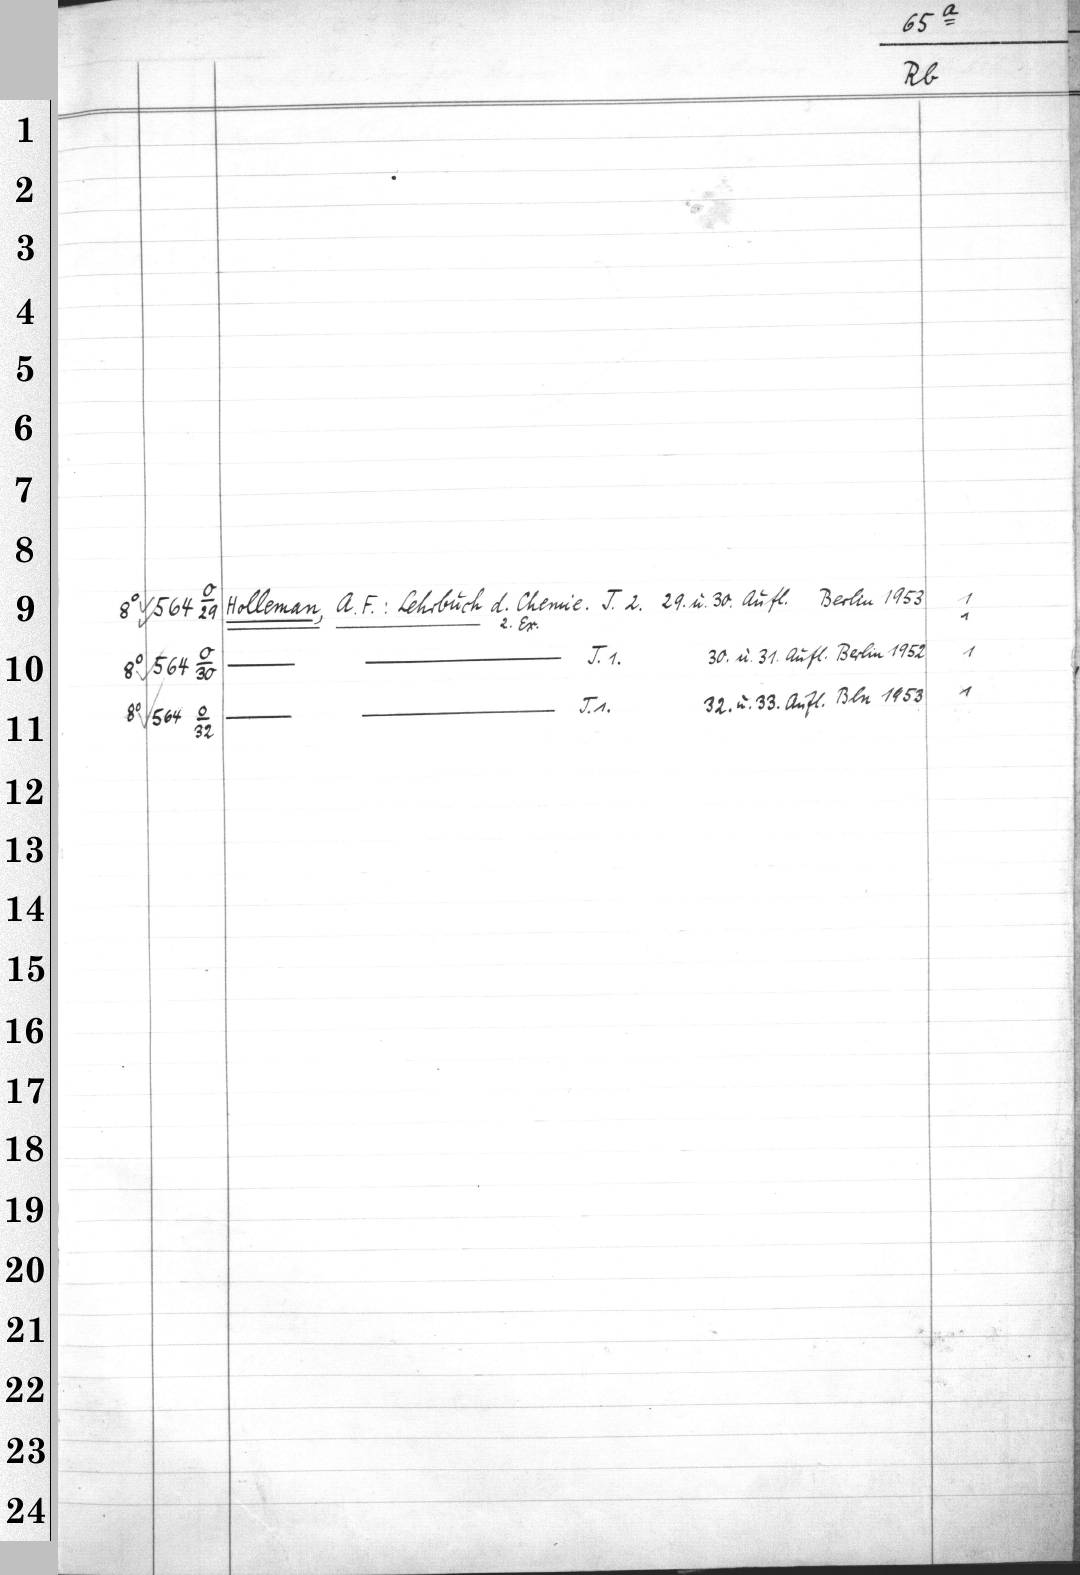 65 a
Rb
1
2
3
4
5
6
7
8
9 8° 564 O/29 Holleman, A. F.: Lehrbuch d. Chemie. T. 2. 29. u. 30. Aufl. Berlin 1953 1
2. Ex. 1
10 8° 564 O/30 — — T. 1. 30. u. 31. Aufl. Berlin 1952 1
11 8° 564 O/32 — — T. 1. 32. u. 33. Aufl. Bln 1953 1
12
13
14
15
16
17
18
19
20
21
22
23
24